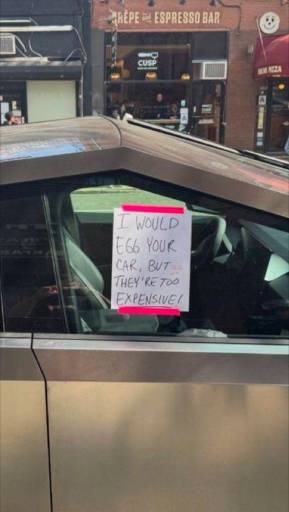 CRÊPE AND ESPRESSO BAR
CUSP
PIZZA
I WOULD
EGG YOUR
CAR, BUT
THEY'RE TOO
EXPENSIVE!